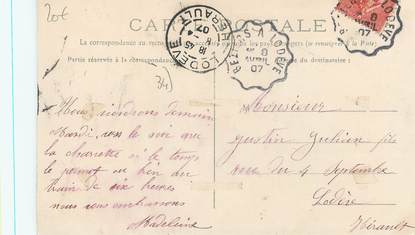 20€
CARTE POSTALE
La correspondance au recto
(se renseigner à la Poste)
Partie réservée à la correspondance
du destinataire
LODEVE
HERAULT
18 45
8 -4
07
LODEVE
8
AVRIL
07
LODEVE
8
AVRIL
07
34
Nous viendrons demain
Mardi, vers le soir avec
la charrette si le temps
le permet ou bien au
train de six heures
nous vous embrassons
Madeleine
Monsieur
Gustin Julien fils
rue du 4 Septembre
Lodève
Hérault